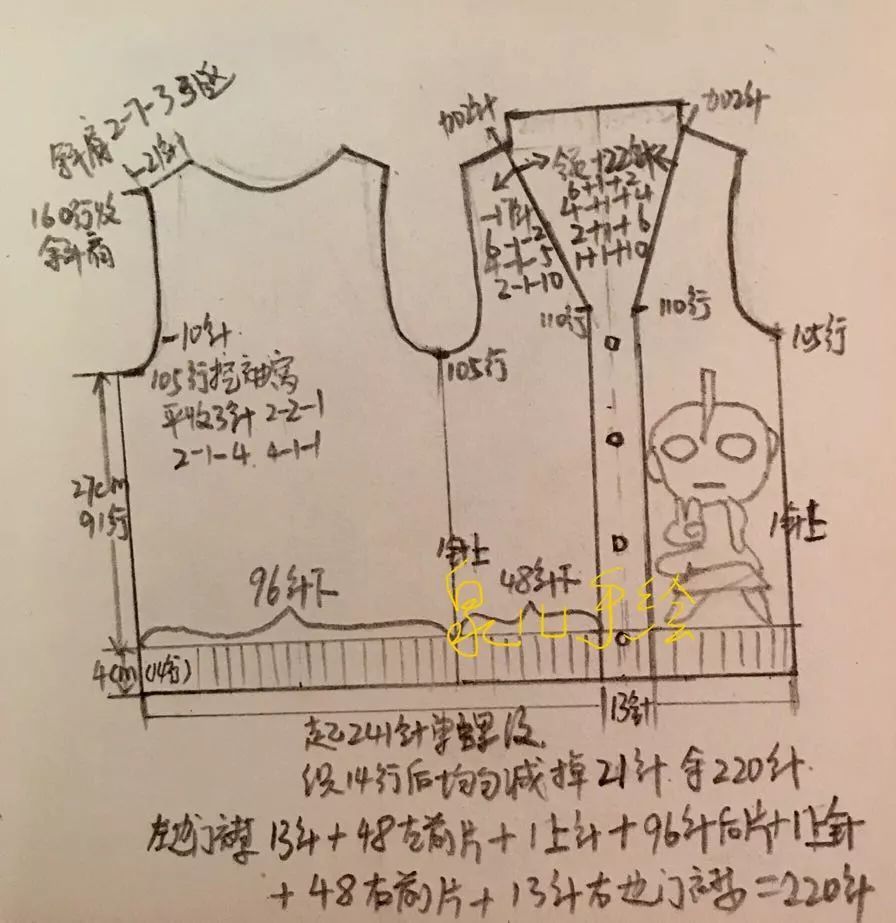 斜肩2-7-3引退
-21针
160行收
斜肩
-10针
105行挖袖窝
平收3针 2-2-1
2-1-4. 4-1-1
27cm
91行
4cm(14行)
96针下
105行
1针上
加02针
-17针
6-1-2
4-1-5
2-1-10
领+22针
6+1+2
4+1+4
2+1+6
1+1+10
加02针
110行
110行
105行
48针下
1针上
泉山手绘
13针
起241针单螺纹
织14行后均匀减掉21针 余220针
左边门襟13针+48左前片+1上针+96针后片+1上针
+48右前片+13针右边门襟=220针